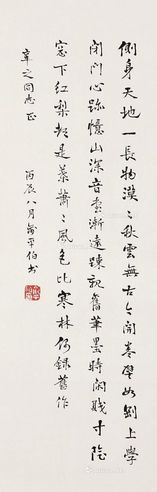 側身天地一長物漠〻秋雲無古今開卷如上學
閉門心跡憶山深音書漸遠踈親舊筆墨時閑賤寸陰
窓下紅梨都是葉蕭〻風色比寒林録舊作
辛之同志正
丙辰八月俞平伯書